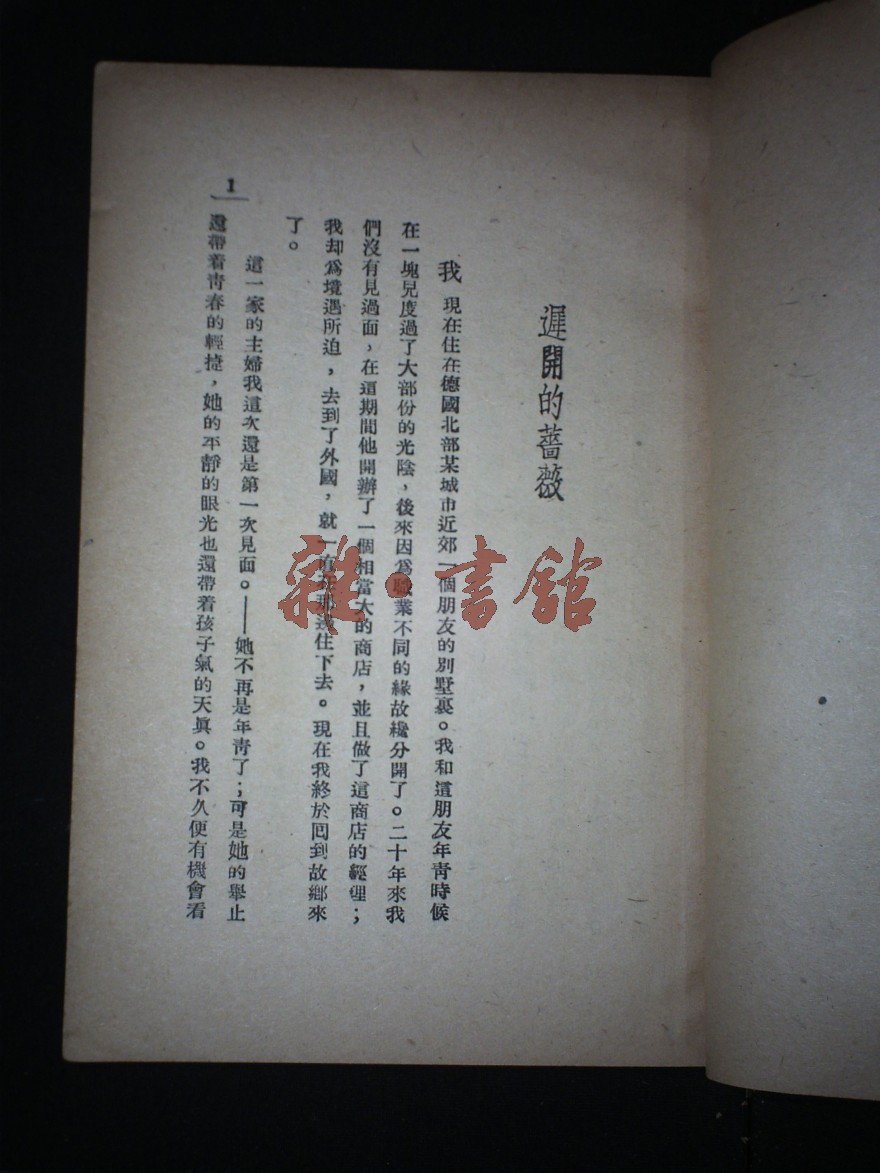 遲開的薔薇
我現在住在德國北部某城市近郊一個朋友的別墅裏。我和這朋友年靑時候
在一塊兒度過了大部份的光陰，後來因爲職業不同的緣故纔分開了。二十年來我
們沒有見過面，在這期間他開辦了一個相當大的商店，並且做了這商店的經理；
我却爲境遇所迫，去到了外國，就一直在那邊住下去。現在我終於回到故鄉來
了。
這一家的主婦我這次還是第一次見面。——她不再是年靑了；可是她的舉止
還帶着靑春的輕捷，她的平靜的眼光也還帶着孩子氣的天眞。我不久便有機會看
1
雜·書館